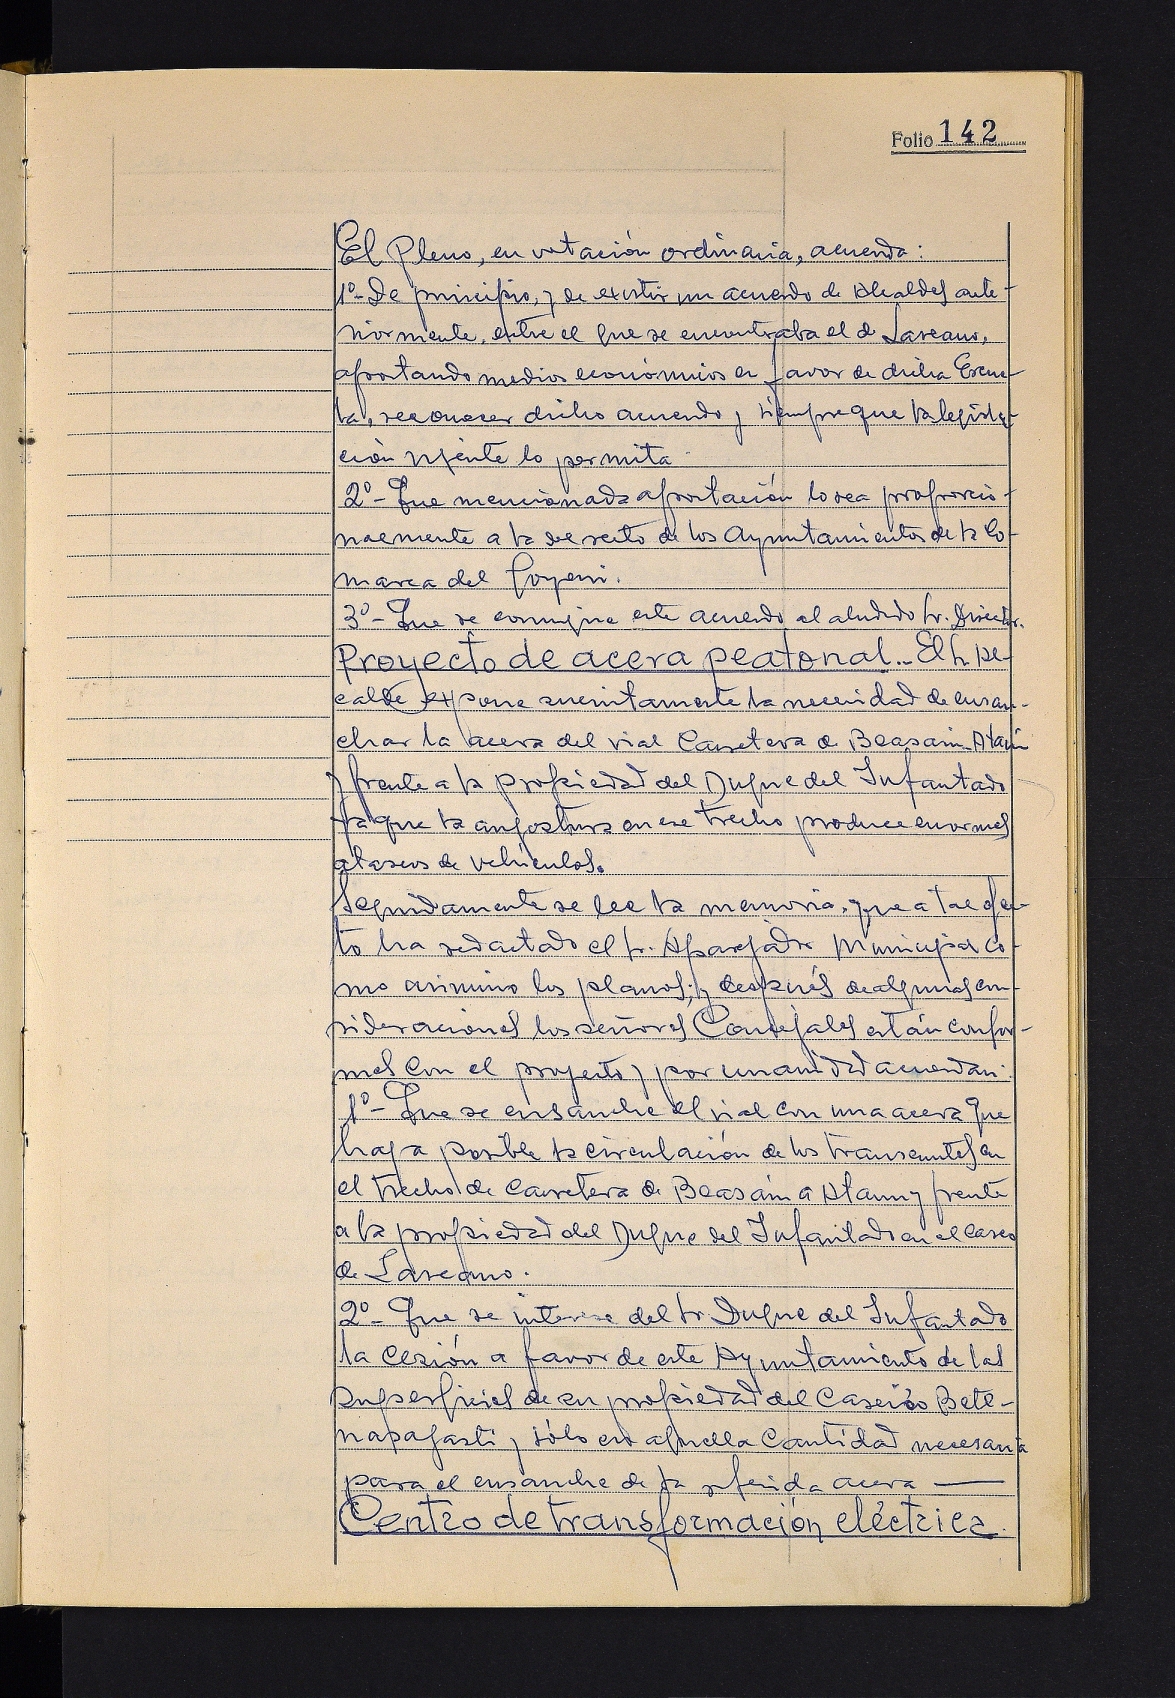 Folio 142
El Pleno, en votación ordinaria, acuerda:
1º- De principio, y de existir un acuerdo de Alcaldes ante-
riormente, entre el que se encontraba el de Lazcano,
aportando medios económicos en favor de dicha Escue-
la, reconocer dicho acuerdo y siempre que la legisla-
ción vigente lo permita.
2º- Que mencionada aportación lo sea proporcio-
nalmente a la del resto de los Ayuntamientos de la Co-
marca del Goyerri.
3º- Que se comunique este acuerdo al aludido Sr. Director.
Proyecto de acera peatonal.- El Sr. Al-
calde expone sucintamente la necesidad de ensan-
char la acera del vial Carretera de Beasain Ataun
y frente a la propiedad del Duque del Infantado
ya que la angostura en ese trecho produce enormes
atascos de vehículos.
Seguidamente se lee la memoria, que a tal efec-
to ha redactado el Sr. Aparejador Municipal co-
mo asimismo los planos; y después de algunas con-
sideraciones los señores Concejales están confor-
mes con el proyecto y por unanimidad acuerdan:
1º- Que se ensanche el vial con una acera que
haga posible la circulación de los transeuntes en
el trecho de Carretera de Beasain a Ataun y frente
a la propiedad del Duque del Infantado en el casco
de Lazcano.
2º- Que se interese del Sr. Duque del Infantado
la cesión a favor de este Ayuntamiento de las
superficies de su propiedad del Caserío Bate-
napagasti y sólo en aquella Cantidad necesaria
para el ensanche de la referida acera
Centro de transformación eléctrica.